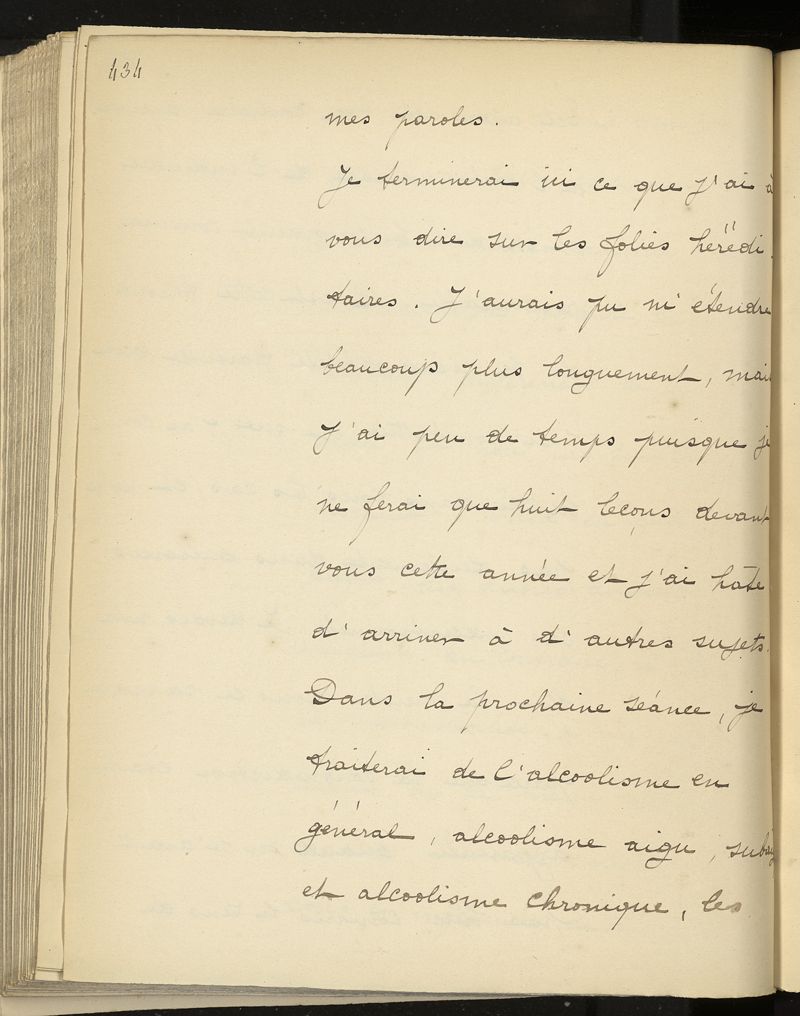 434
mes paroles.
Je terminerai ici ce que j'ai à
vous dire sur les folies hérédi
taires. J'aurais pu m'étendre
beaucoup plus longuement, mais
j'ai peu de temps puisque je
ne ferai que huit leçons devant
vous cette année et j'ai hâte
d'arriver à d'autres sujets.
Dans la prochaine séance, je
traiterai de l'alcoolisme en
général, alcoolisme aigu,
et alcoolisme chronique, les